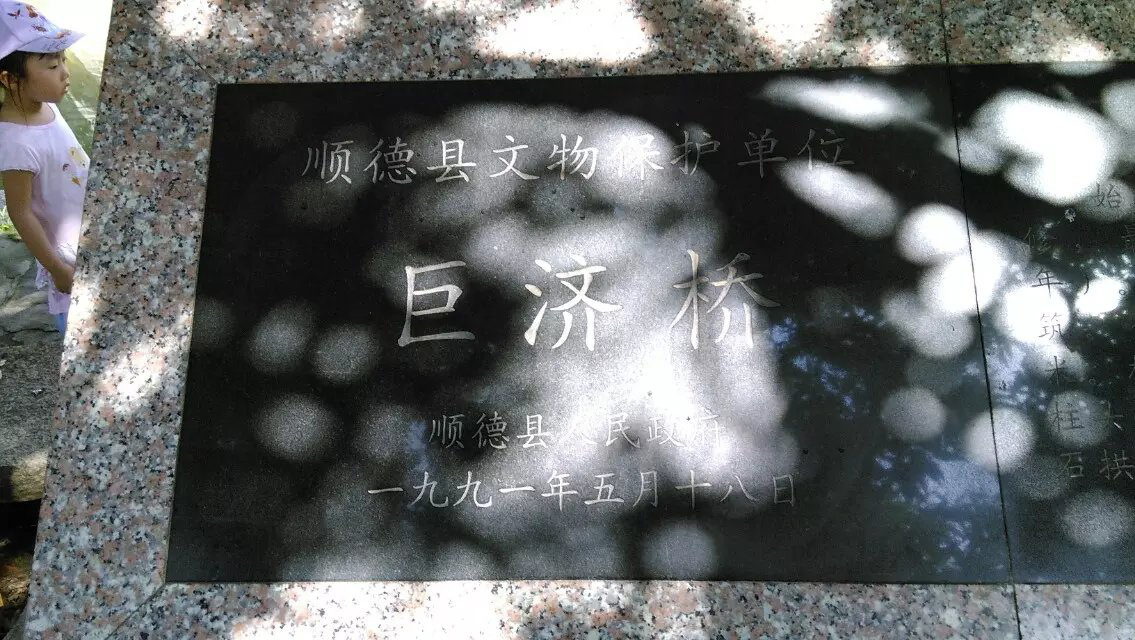 顺德县文物保护单位
巨济桥
顺德县人民政府
一九九一年五月十八日
始
修年筑木柱石
拱